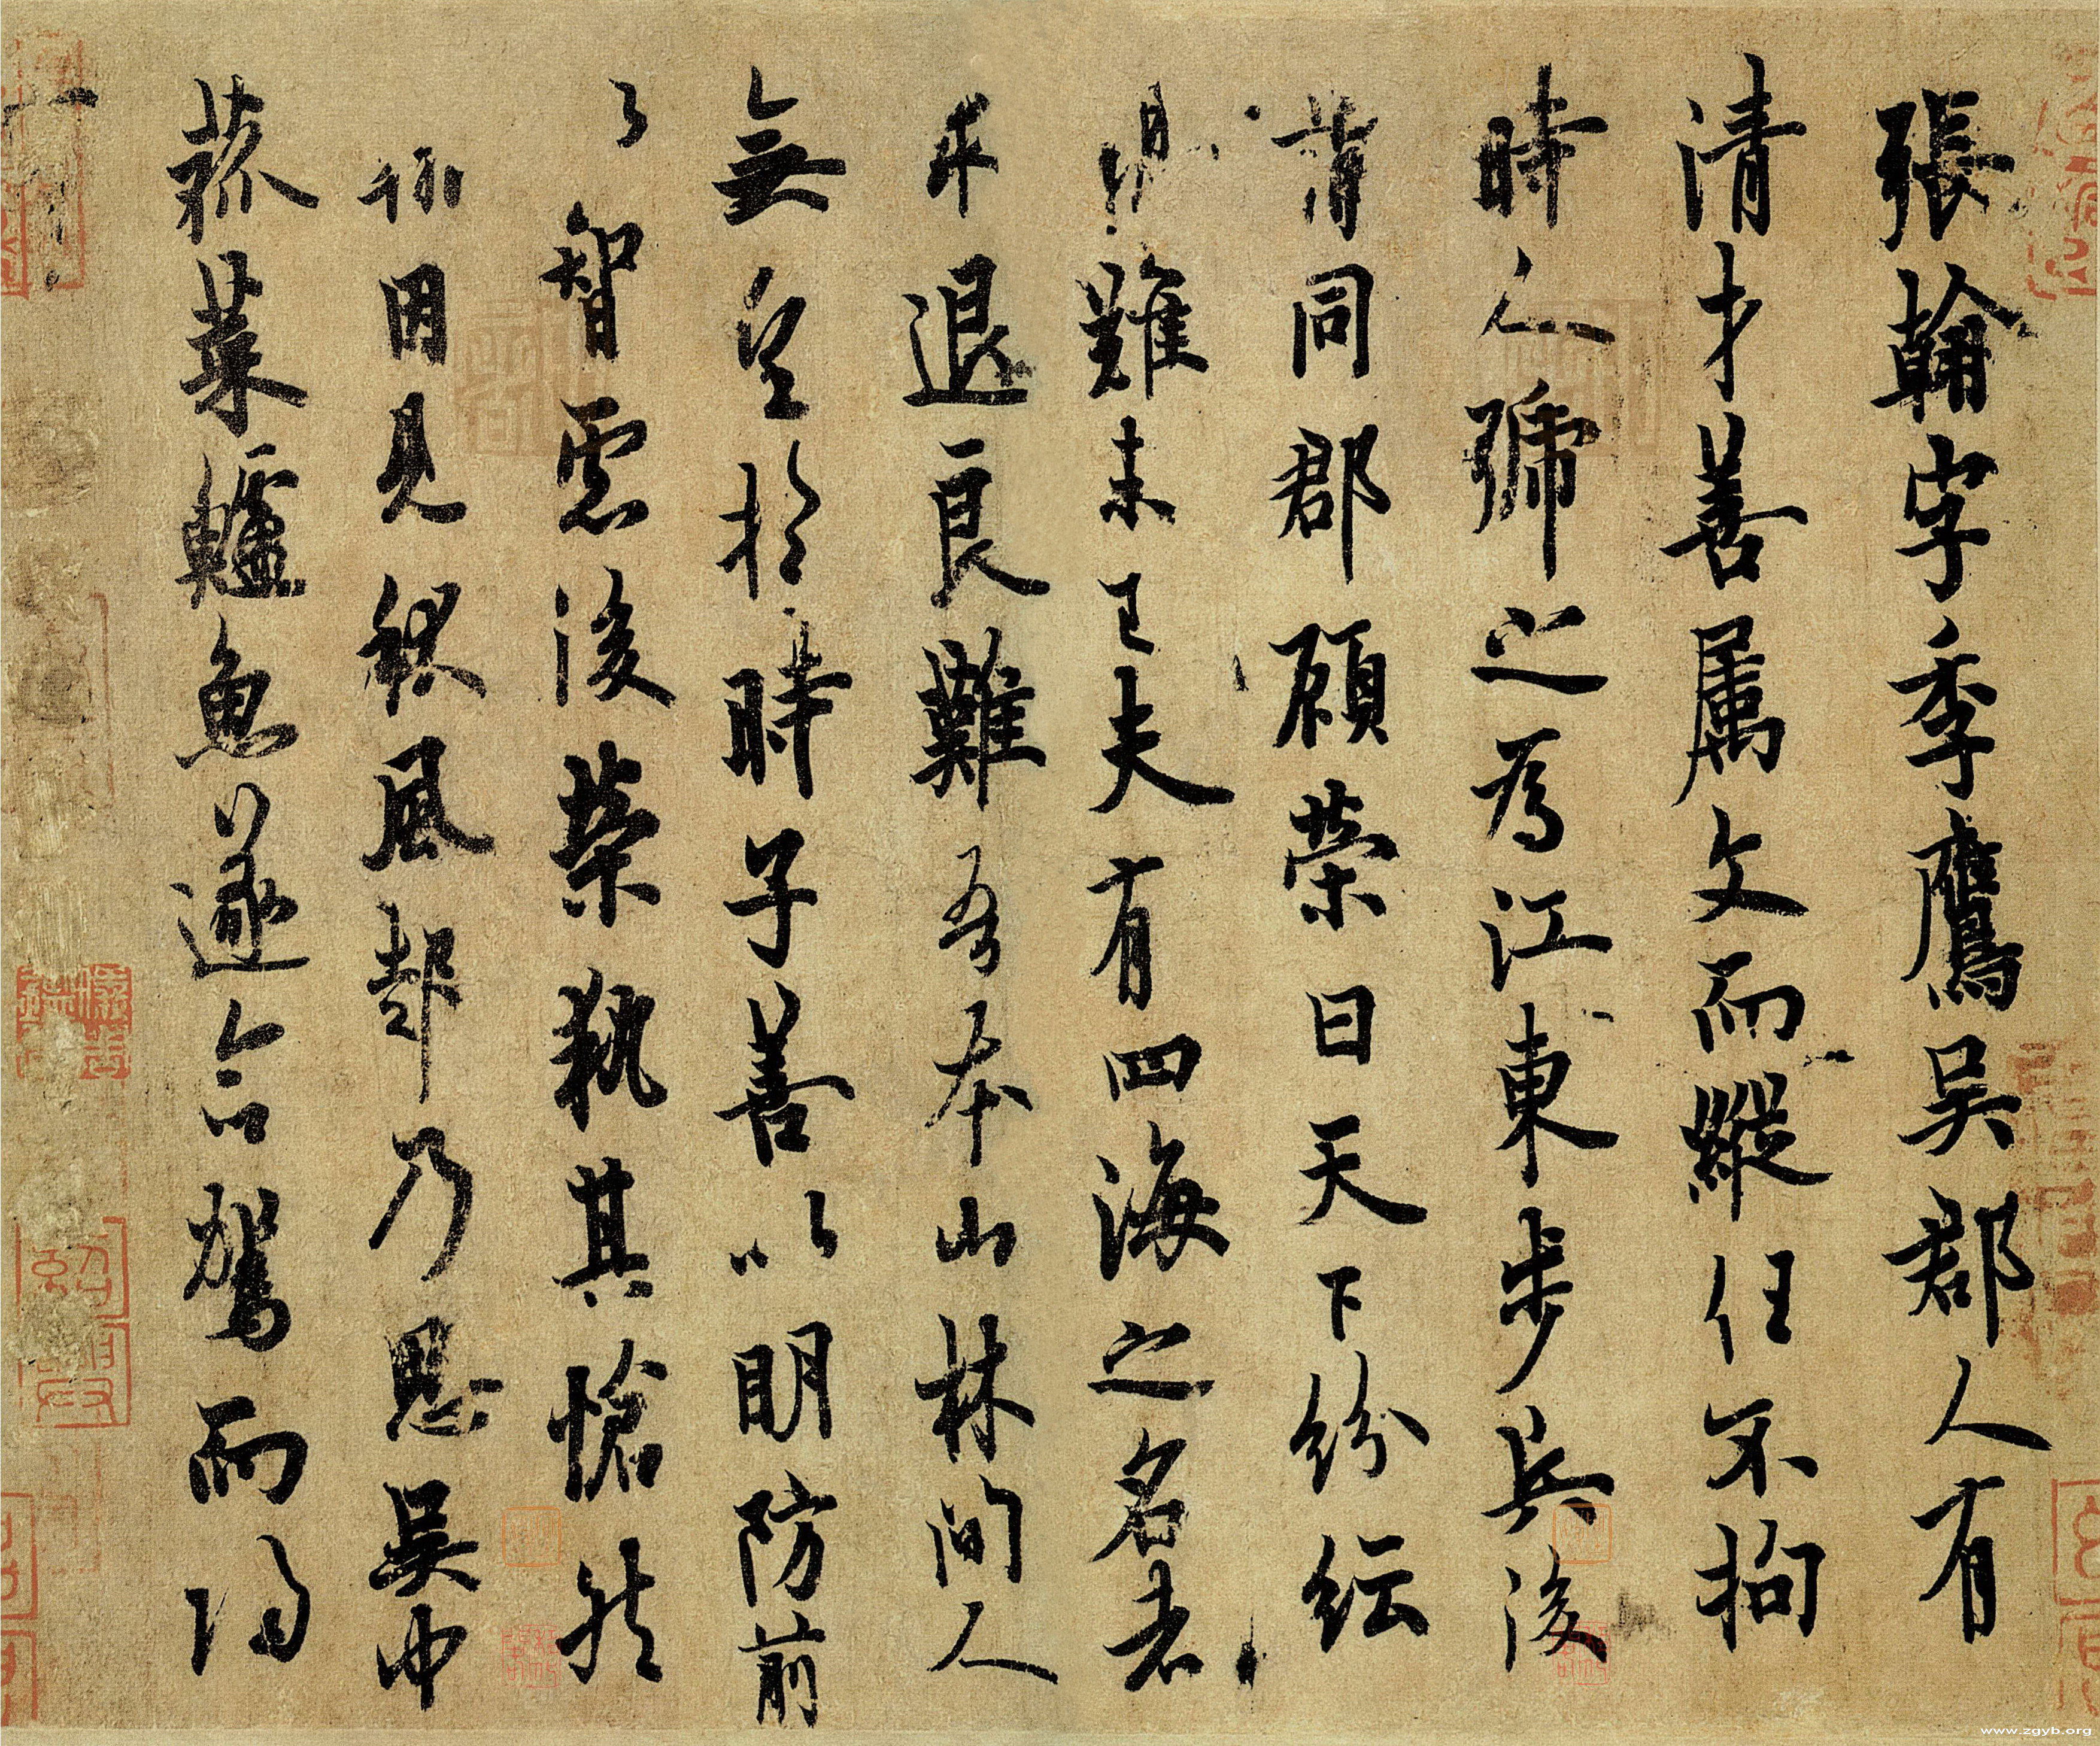 張翰字季鷹吳郡人有
清才善属文而縱任不拘
時人號之為江東步兵後
同郡顧榮曰天下紛紜
難未已夫有四海之名者
求退良難吾本山林間人
無望於時子善以明防前
以智慮後榮執其愴然
因見秋風起乃思吳中
菰菜鱸魚遂命駕而歸
www.zgyb.org